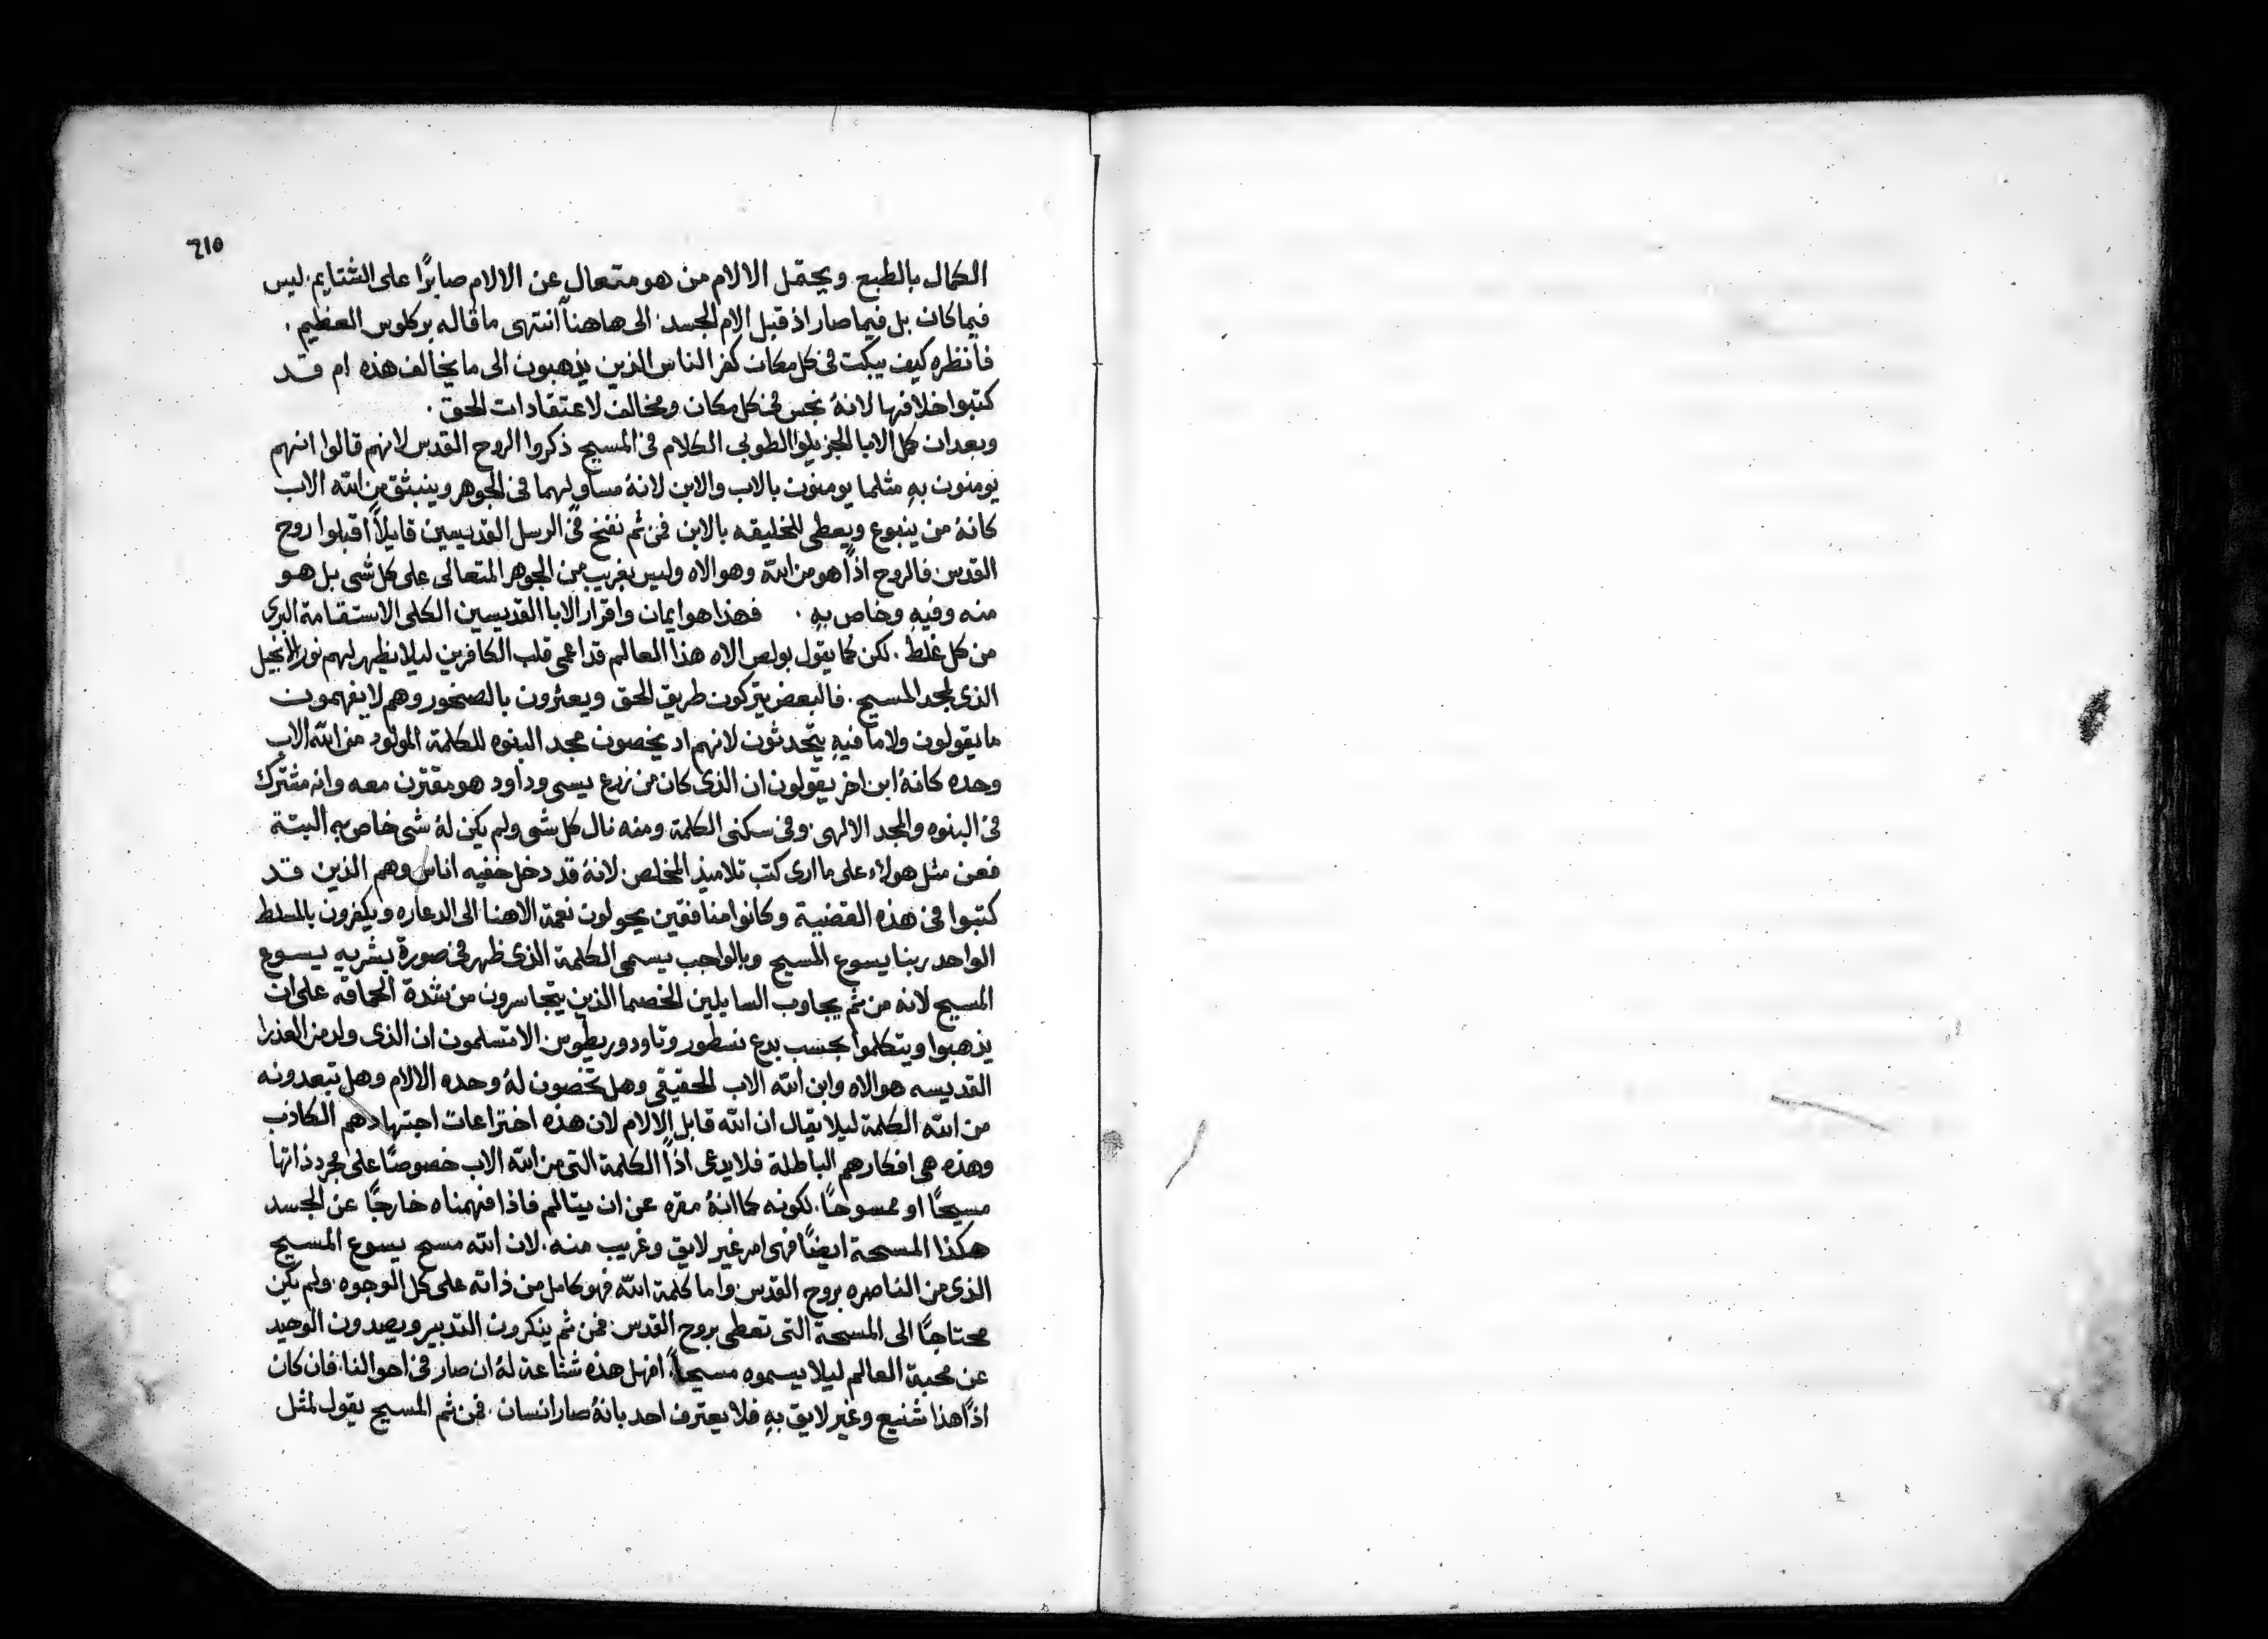 210
الكمال بالطبع ويحتمل الالام من هو متعال عن الالام صابرًا على الشتايم. ليس
فيما كان بل فيما صار اذ قبل الام الجسد. الى هاهنا انتهى ما قاله بركلوس العظيم.
فانظره كيف يبكت فى كل مكان كفر الناس الذين يذهبون الى ما يخالف هذه ام قد
كتبوا خلافها لانهُ نجس فى كل مكان ومخالف لاعتقادات الحق.
وبعد ان كمل الابا الجزيلوا الطوبى الكلام فى المسيح ذكروا الروح القدس لانهم قالوا انهم
يومنون بهِ مثلما يومنون بالاب والابن لانهُ مساوٍ لهما فى الجوهر وينبثق من الله الاب
كانهُ من ينبوع ويعطى للخليقه بالابن فمن ثم نفخ فى الرسل القديسين قايلاً اقبلوا روح
القدس فالروح اذًا هو من الله وهو الاه وليس بغريب من الجوهر المتعالى على كل شى بل هو
منه وفيهِ وخاص بهِ. فهذا هو ايمان واقرار الابا القديسين الكلى الاستقامة البرى
من كل غلط. لكن كما يقول بولص الاه هذا العالم قد اعمى قلب الكافرين ليلا يظهر لهم نور الانجيل
الذى لمجد المسيح. فالبعض يتركون طريق الحق ويعثرون بالصخور وهم لا يفهمون
ما يقولون ولا ما فيهِ يتحدثون لانهم اد يخصون مجد البنوه للكلمة المولود من الله الاب
وحده كانهُ ابن اخر يقولون ان الذى كان من زرع يسى وداود هو مقترن معه وانه مشترك
فى البنوه والمجد الالهى. وفى سكنى الكلمة ومنه نال كل شى ولم يكن لهُ شى خاص بهِ البتة
فعن مثل هولاء على ما ارى كتب تلاميذ المخلص. لانهُ قد دخل خفيه اناس وهم الذين قد
كتبوا فى هذه القضية وكانوا منافقين يحولون نعمة الاهنا الى الدعاره ويكفرون بالمسلط
الواحد ربنا يسوع المسيح وبالواجب يسمى الكلمة الذى ظهر فى صورة بشريه يسوع
المسيح لانه من ثم يجاوب السايلين الخصما الذين يتجاسرون من شدة الحماقه على ان
يذهبوا ويتكلموا بحسب بدع نسطور وتاودوريطوس. الا تسلمون ان الذى ولد من العذرا
القديسه هو الاه وابن الله الاب الحقيقى وهل تخصون لهُ وحده الالام وهل تبعدونه
من الله الكلمة ليلا يقال ان الله قابل الالام لان هذه اختراعات اجتهادهم الكاذب
وهذه هى افكارهم الباطلة فلا يدعى اذًا الكلمة التى من الله الاب خصوصًا على مجرد ذاتها
مسيحًا او ممسوحًا. لكونه كما انهُ مقره عن ان يتالم فاذا فهمناه خارجًا عن الجسد
هكذا المسحة ايضًا فهى امر غير لايق وغريب منه. لان الله مسح يسوع المسيح
الذى من الناصره بروح القدس. واما كلمة الله فهو كامل من ذاته على كل الوجوه. ولم يكن
محتاجًا الى المسحة التى تعطى بروح القدس. فمن ثم ينكرون التدبير ويصدون الوحيد
عن محبة العالم ليلا يسموه مسيحاً. افهل هذه شناعة لهُ ان صار فى احوالنا فان كان
اذًا هذا شنيع وغير لايق بهِ فلا يعترف احد بانهُ صار انسان. فمن ثم المسيح يقول لمثل